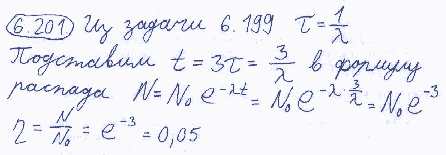 6.201 Из задачи 6.199 τ = 1/λ
Подставим t = 3τ = 3/λ в формулу
распада N = N₀ e^{-λt} = N₀ e^{-λ·3/λ} = N₀ e^{-3}
η = N/N₀ = e^{-3} = 0,05